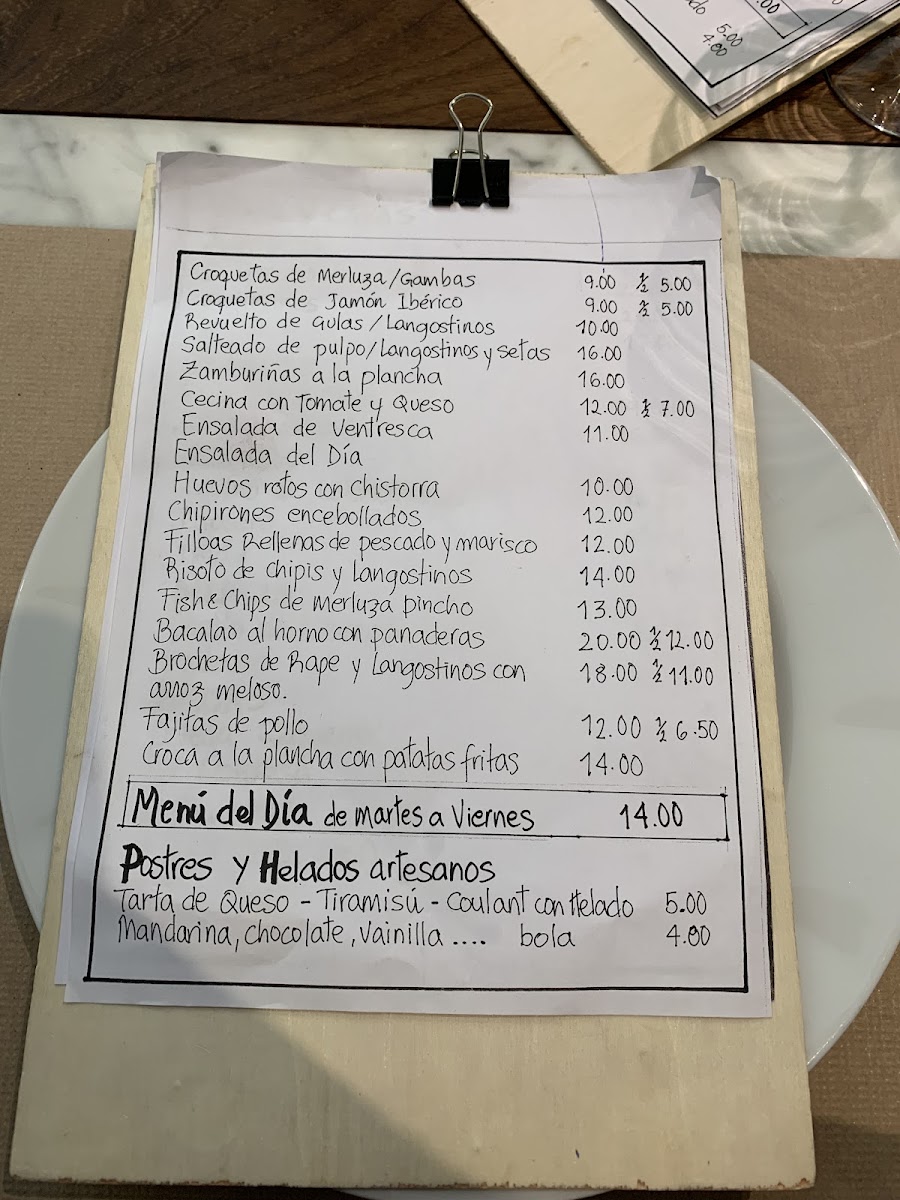 .00
do 5.00
4.00
Croquetas de Merluza/Gambas 9.00 ½ 5.00
Croquetas de Jamón Ibérico 9.00 ½ 5.00
Revuelto de Gulas/Langostinos 10.00
Salteado de pulpo/Langostinos y setas 16.00
Zamburiñas a la plancha 16.00
Cecina con Tomate y Queso 12.00 ½ 7.00
Ensalada de Ventresca 11.00
Ensalada del Día
Huevos rotos con chistorra 10.00
Chipirones encebollados 12.00
Filloas Rellenas de pescado y marisco 12.00
Risoto de chipis y langostinos 14.00
Fish & Chips de Merluza pincho 13.00
Bacalao al horno con panaderas 20.00 ½ 12.00
Brochetas de Rape y Langostinos con 18.00 ½ 11.00
arroz meloso.
Fajitas de pollo 12.00 ½ 6.50
Croca a la plancha con patatas fritas 14.00
Menú del Día de martes a Viernes 14.00
Postres y Helados artesanos
Tarta de Queso - Tiramisú - Coulant con Helado 5.00
Mandarina, chocolate, Vainilla .... bola 4.00